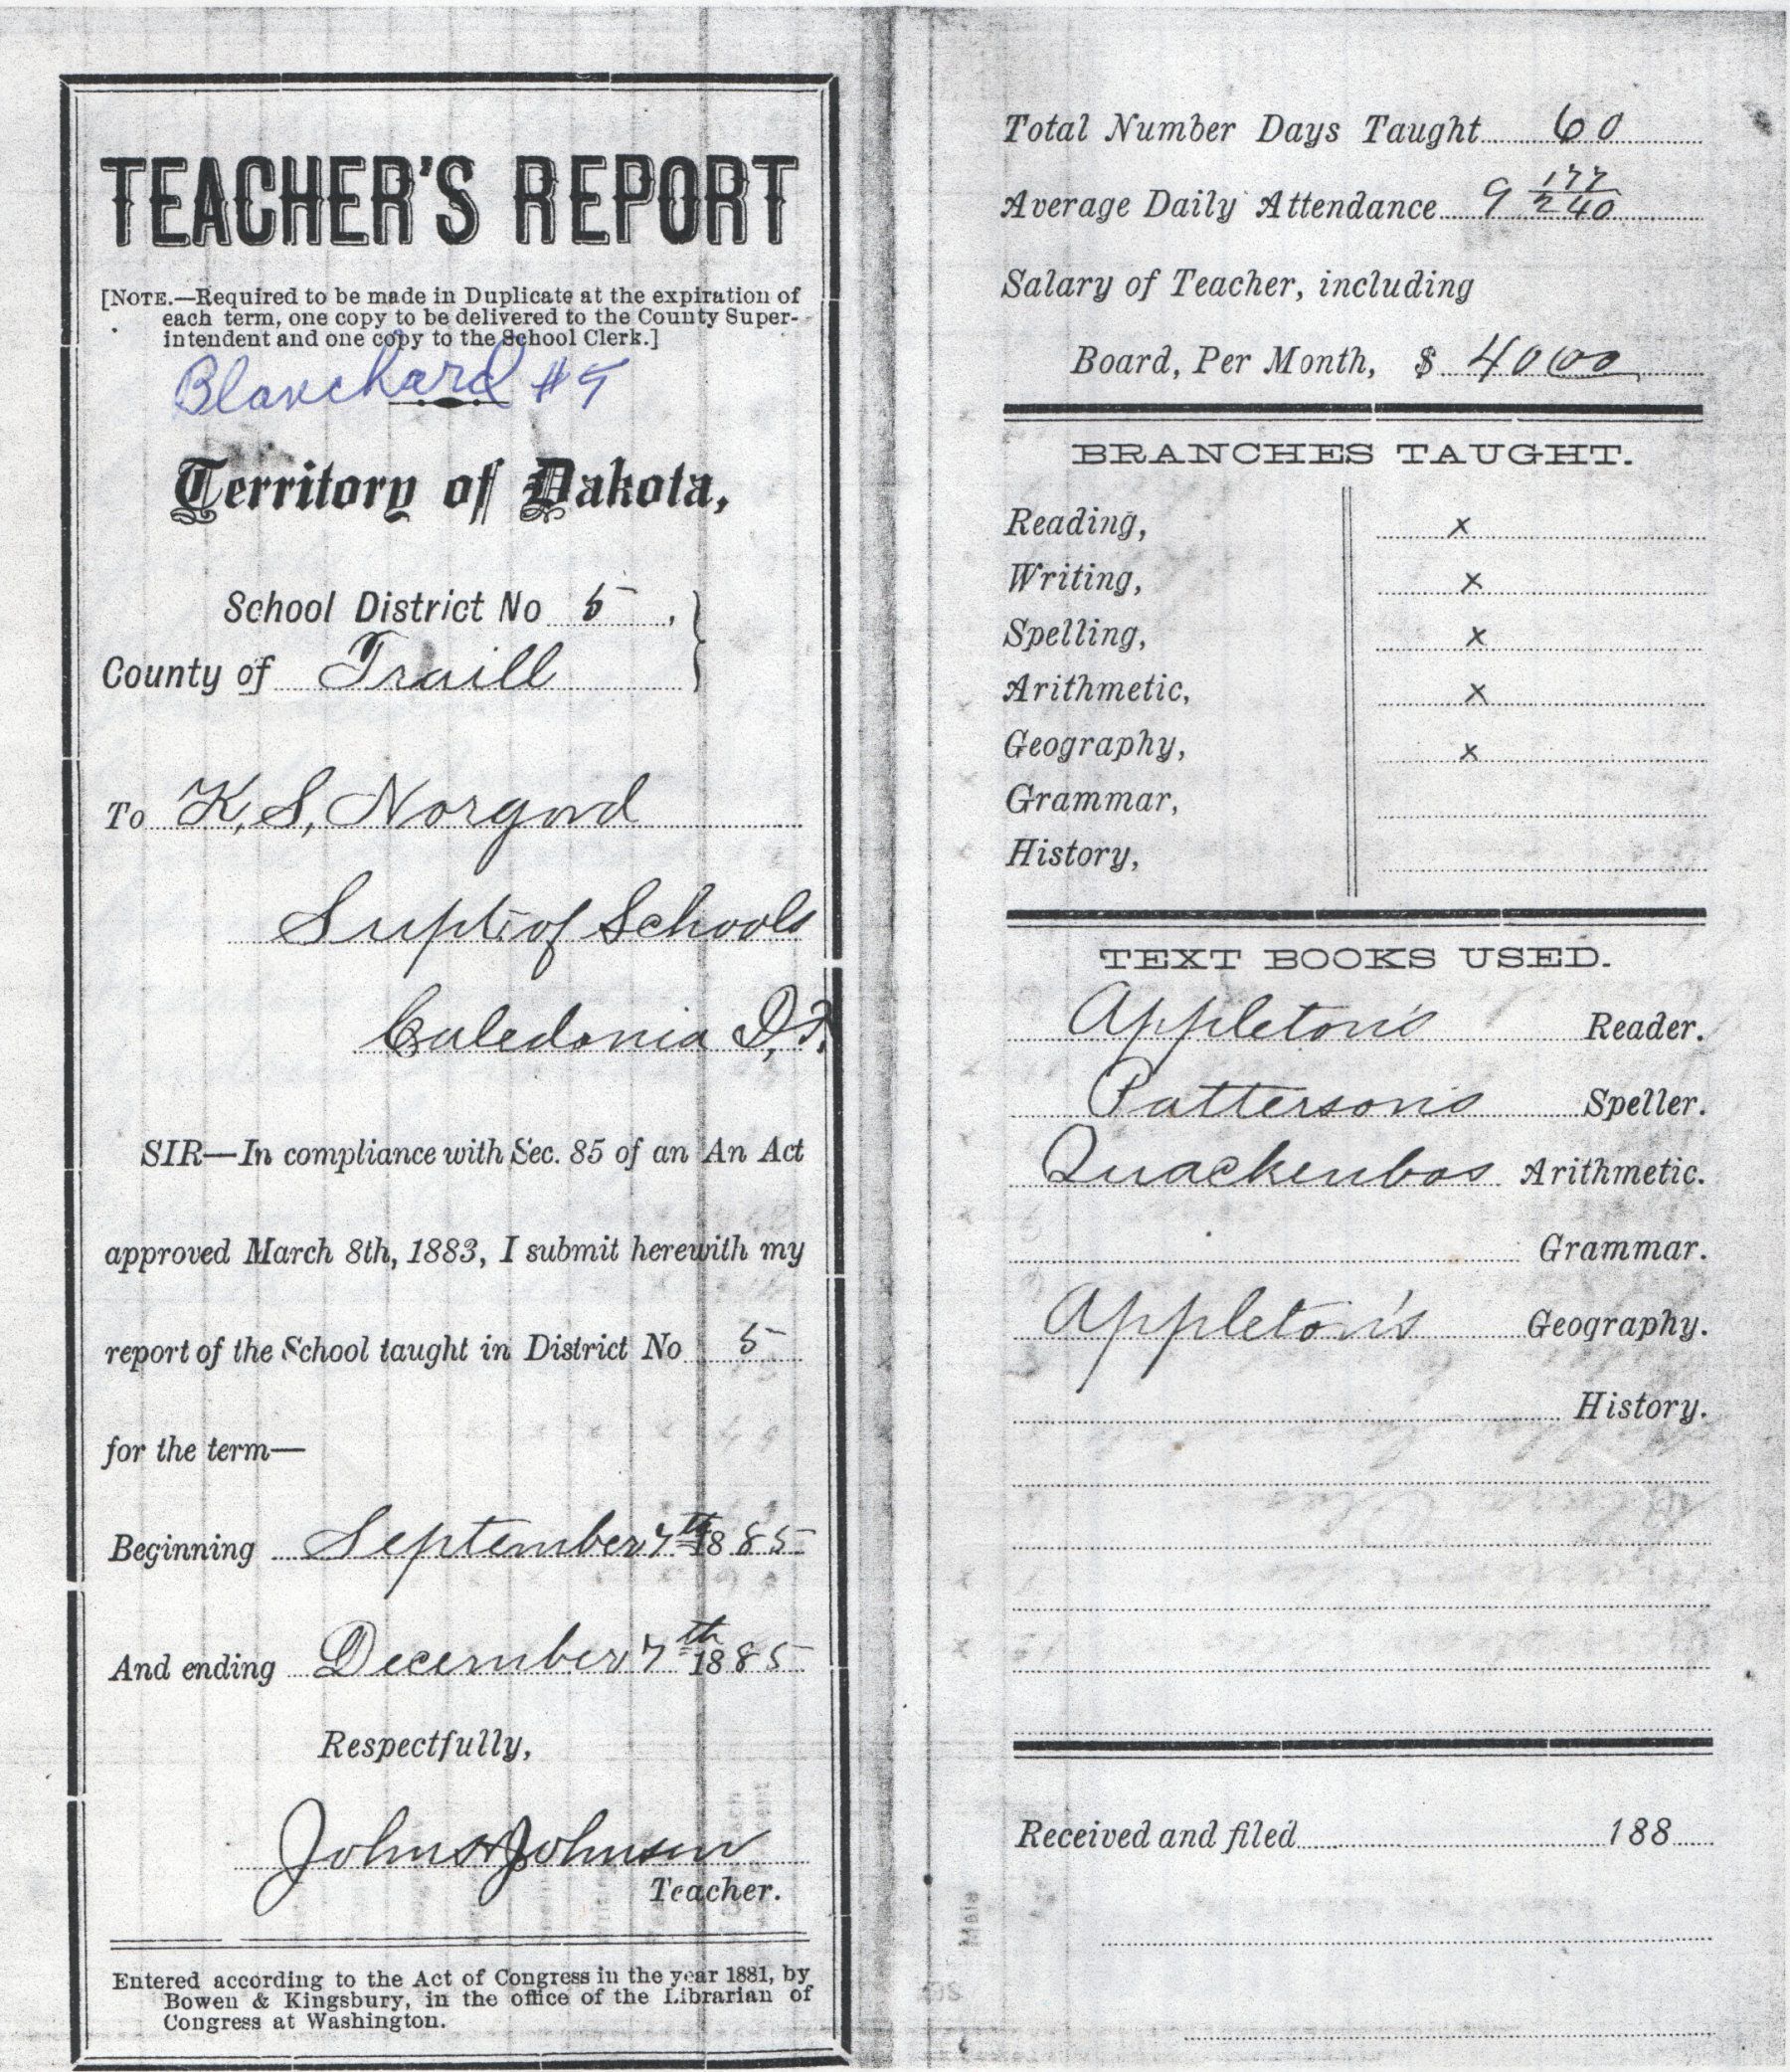 TEACHER'S REPORT
[NOTE.—Required to be made in Duplicate at the expiration of
each term, one copy to be delivered to the County Super-
intendent and one copy to the School Clerk.]
Blanchard #5
Territory of Dakota,
School District No 5,
County of Traill
To K. S. Norgord
Supt. of Schools
Caledonia D.T.
SIR—In compliance with Sec. 85 of an An Act
approved March 8th, 1883, I submit herewith my
report of the School taught in District No 5
for the term—
Beginning September 7th 1885
And ending December 7th 1885
Respectfully,
John Johnson
Teacher.
Entered according to the Act of Congress in the year 1881, by
Bowen & Kingsbury, in the office of the Librarian of
Congress at Washington.
Total Number Days Taught 60
Average Daily Attendance 9 177/240
Salary of Teacher, including
Board, Per Month, $ 40 00
BRANCHES TAUGHT.
Reading, x
Writing, x
Spelling, x
Arithmetic, x
Geography, x
Grammar,
History,
TEXT BOOKS USED.
Appleton's Reader.
Patterson's Speller.
Quackenbos Arithmetic.
Grammar.
Appleton's Geography.
History.
Received and filed 188